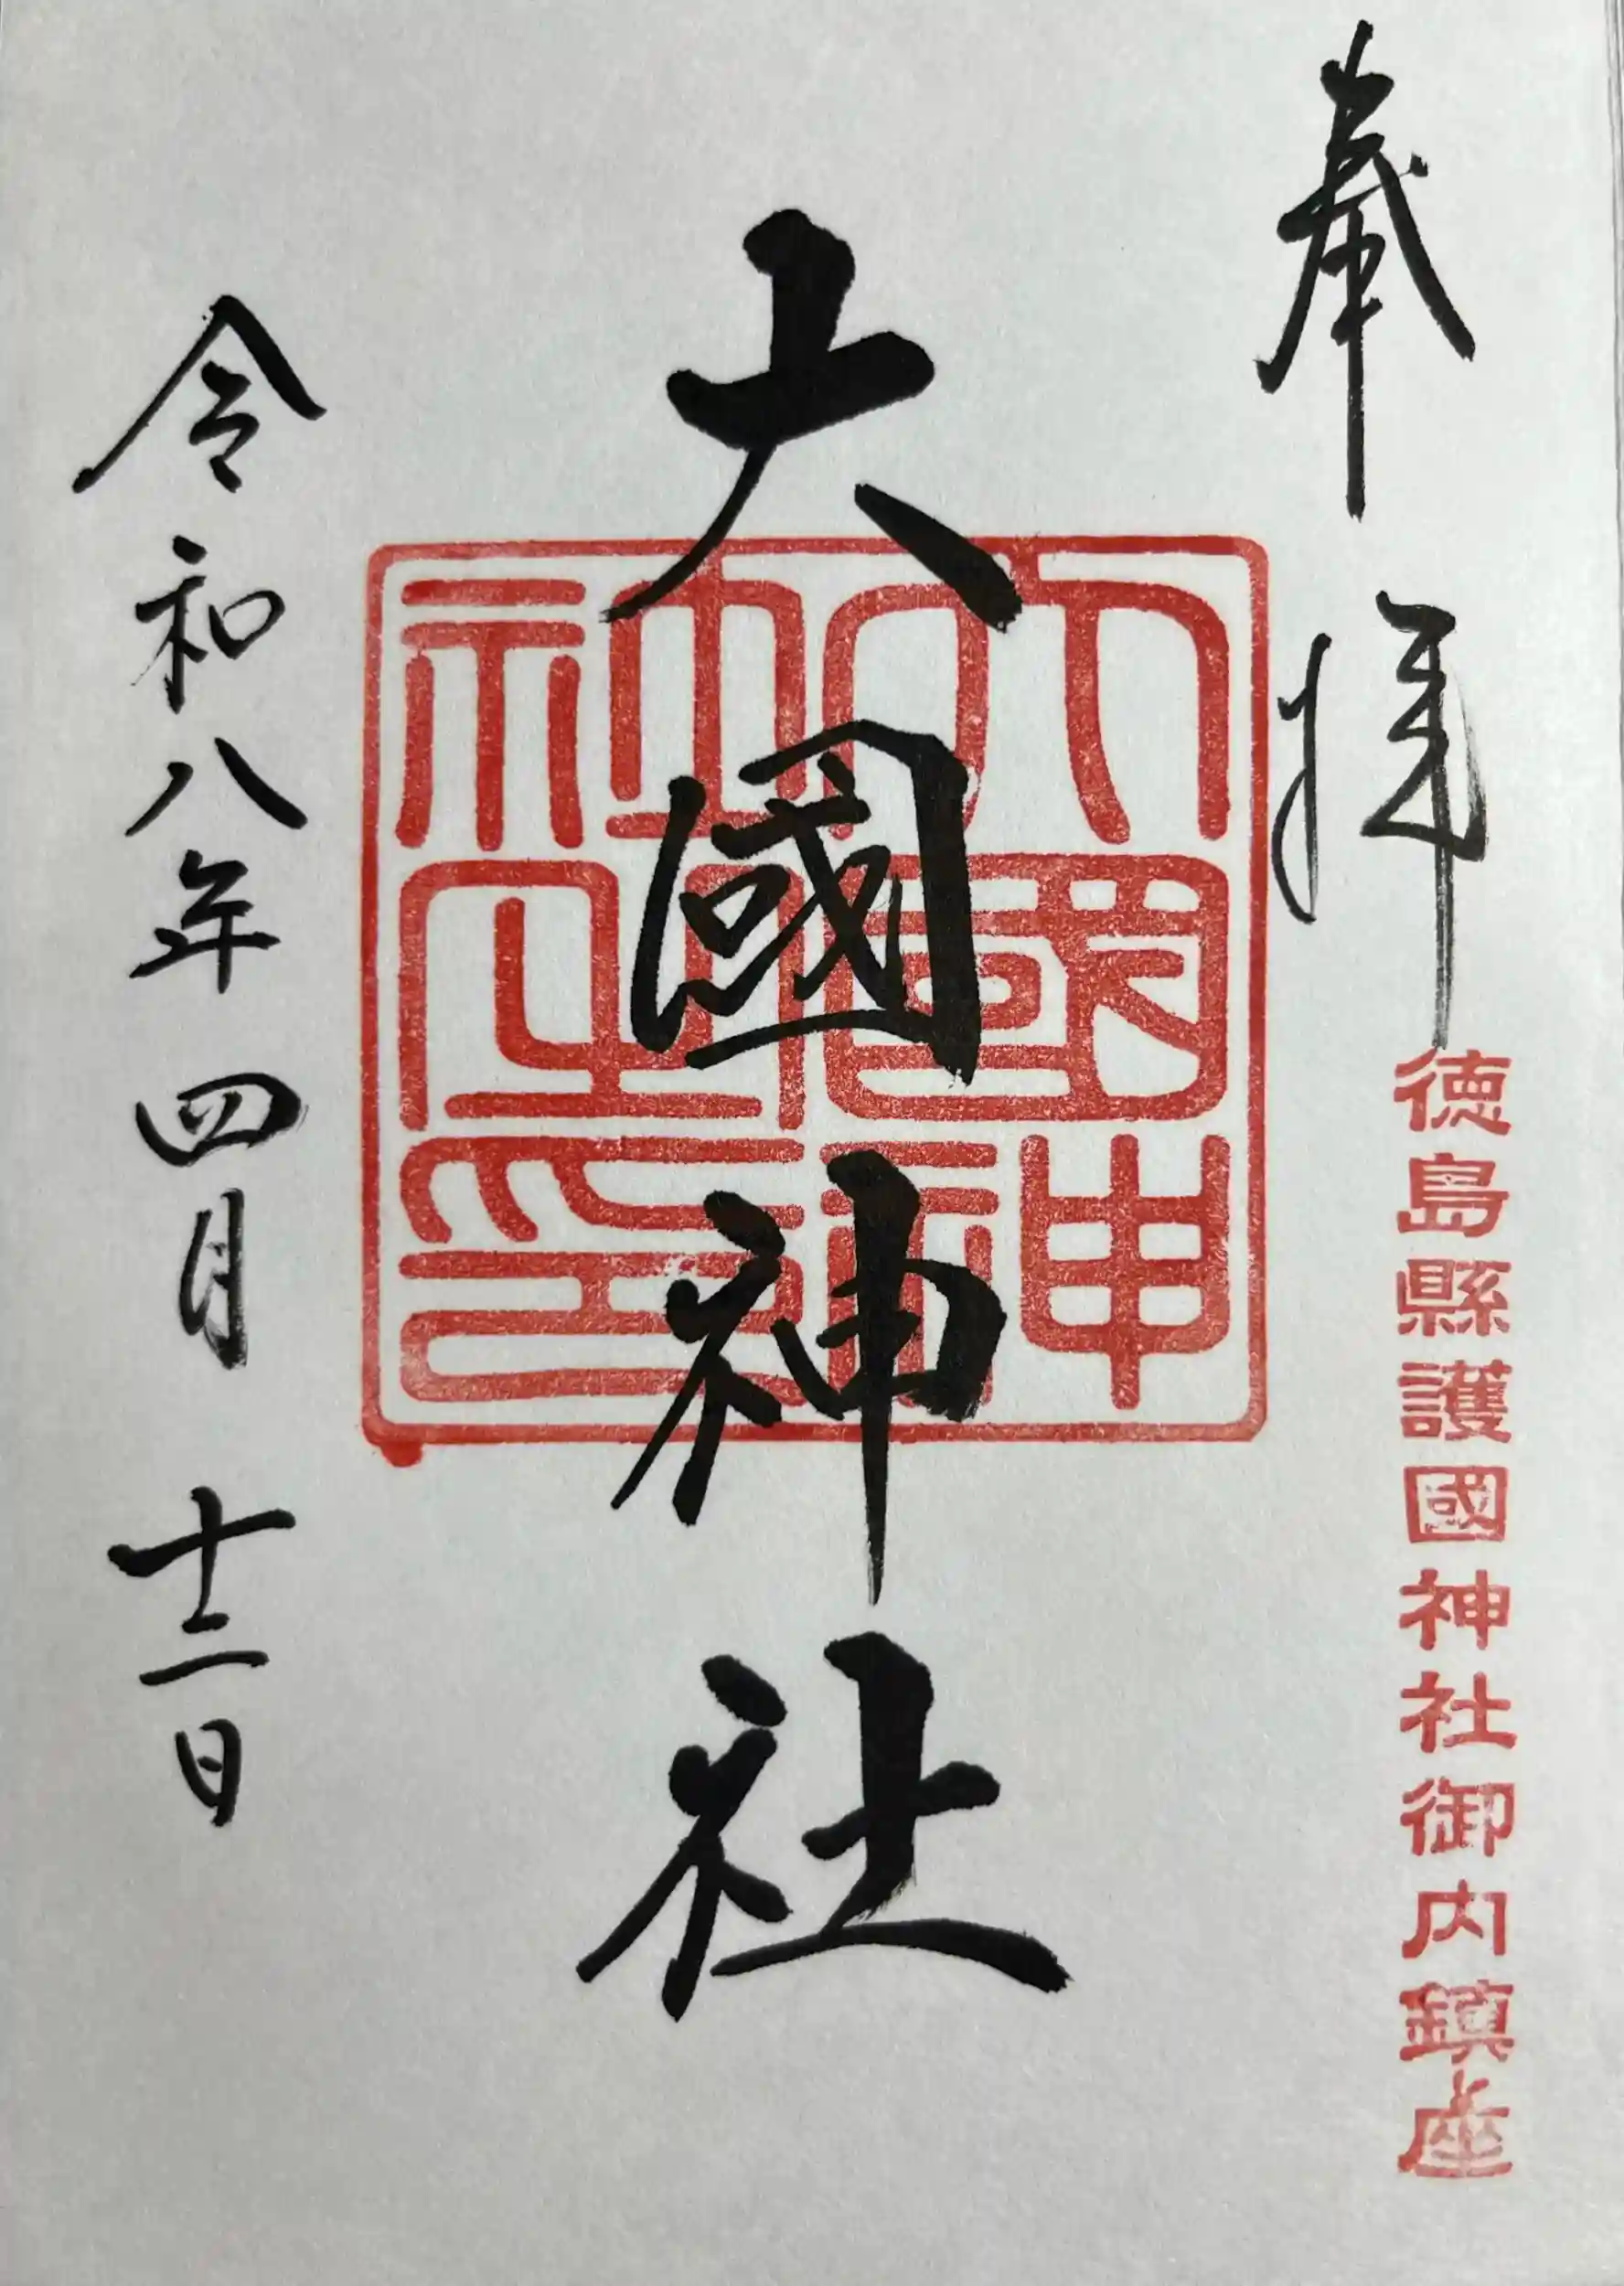 奉拝
徳島縣護國神社御内鎮座
大國神社
大國神
社之印
令和八年四月十二日